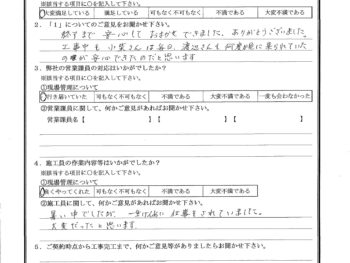 ※該当する項目に○を記入して下さい。
大変満足している 満足している 可もなく不可もなく 不満である 大変不満である
2.「1」についてのご意見をお聞かせ下さい。
終了まで安心しておまかせできました。ありがとうございました。
工事中も小柴さんは毎日、渡辺さんも何度も見に来られていた
の事が安心できたのだと思います
3.弊社の営業課員の対応はいかがでしたか?
※該当する項目に○を記入して下さい。
①現場管理について
行き届いていた 可もなく不可もなく 不満である 大変不満である 一度も会わなかった
②営業課員に関して、何かご意見があればお聞かせ下さい。
営業課員名【 】【 】【 】
4.施工員の作業内容等はいかがでしたか?
※該当する項目に○を記入して下さい。
①現場管理について
良くやってくれた 可もなく不可もなく 不満である 大変不満である
②施工員に関して、何かご意見があればお聞かせ下さい。
暑い中でしたが、一生けん命に仕事をされていました。
大変だったと思います。
5.ご契約時点から工事完工まで、何かご意見等がありましたらお聞かせ下さい。